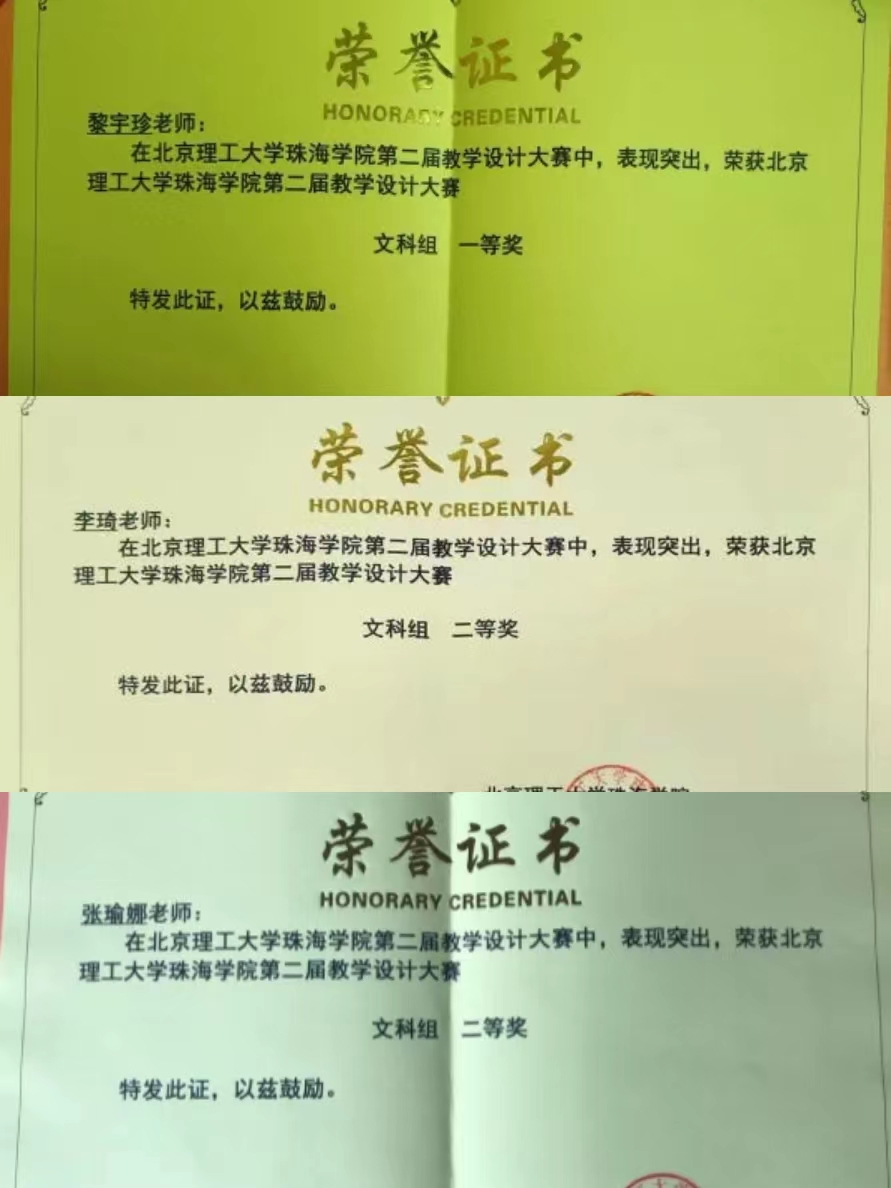 荣誉证书
HONORARY CREDENTIAL
黎宇珍老师：
在北京理工大学珠海学院第二届教学设计大赛中，表现突出，荣获北京
理工大学珠海学院第二届教学设计大赛
文科组 一等奖
特发此证，以兹鼓励。
荣誉证书
HONORARY CREDENTIAL
李琦老师：
在北京理工大学珠海学院第二届教学设计大赛中，表现突出，荣获北京
理工大学珠海学院第二届教学设计大赛
文科组 二等奖
特发此证，以兹鼓励。
北京理工大学珠海学院
荣誉证书
HONORARY CREDENTIAL
张瑜娜老师：
在北京理工大学珠海学院第二届教学设计大赛中，表现突出，荣获北京
理工大学珠海学院第二届教学设计大赛
文科组 二等奖
特发此证，以兹鼓励。